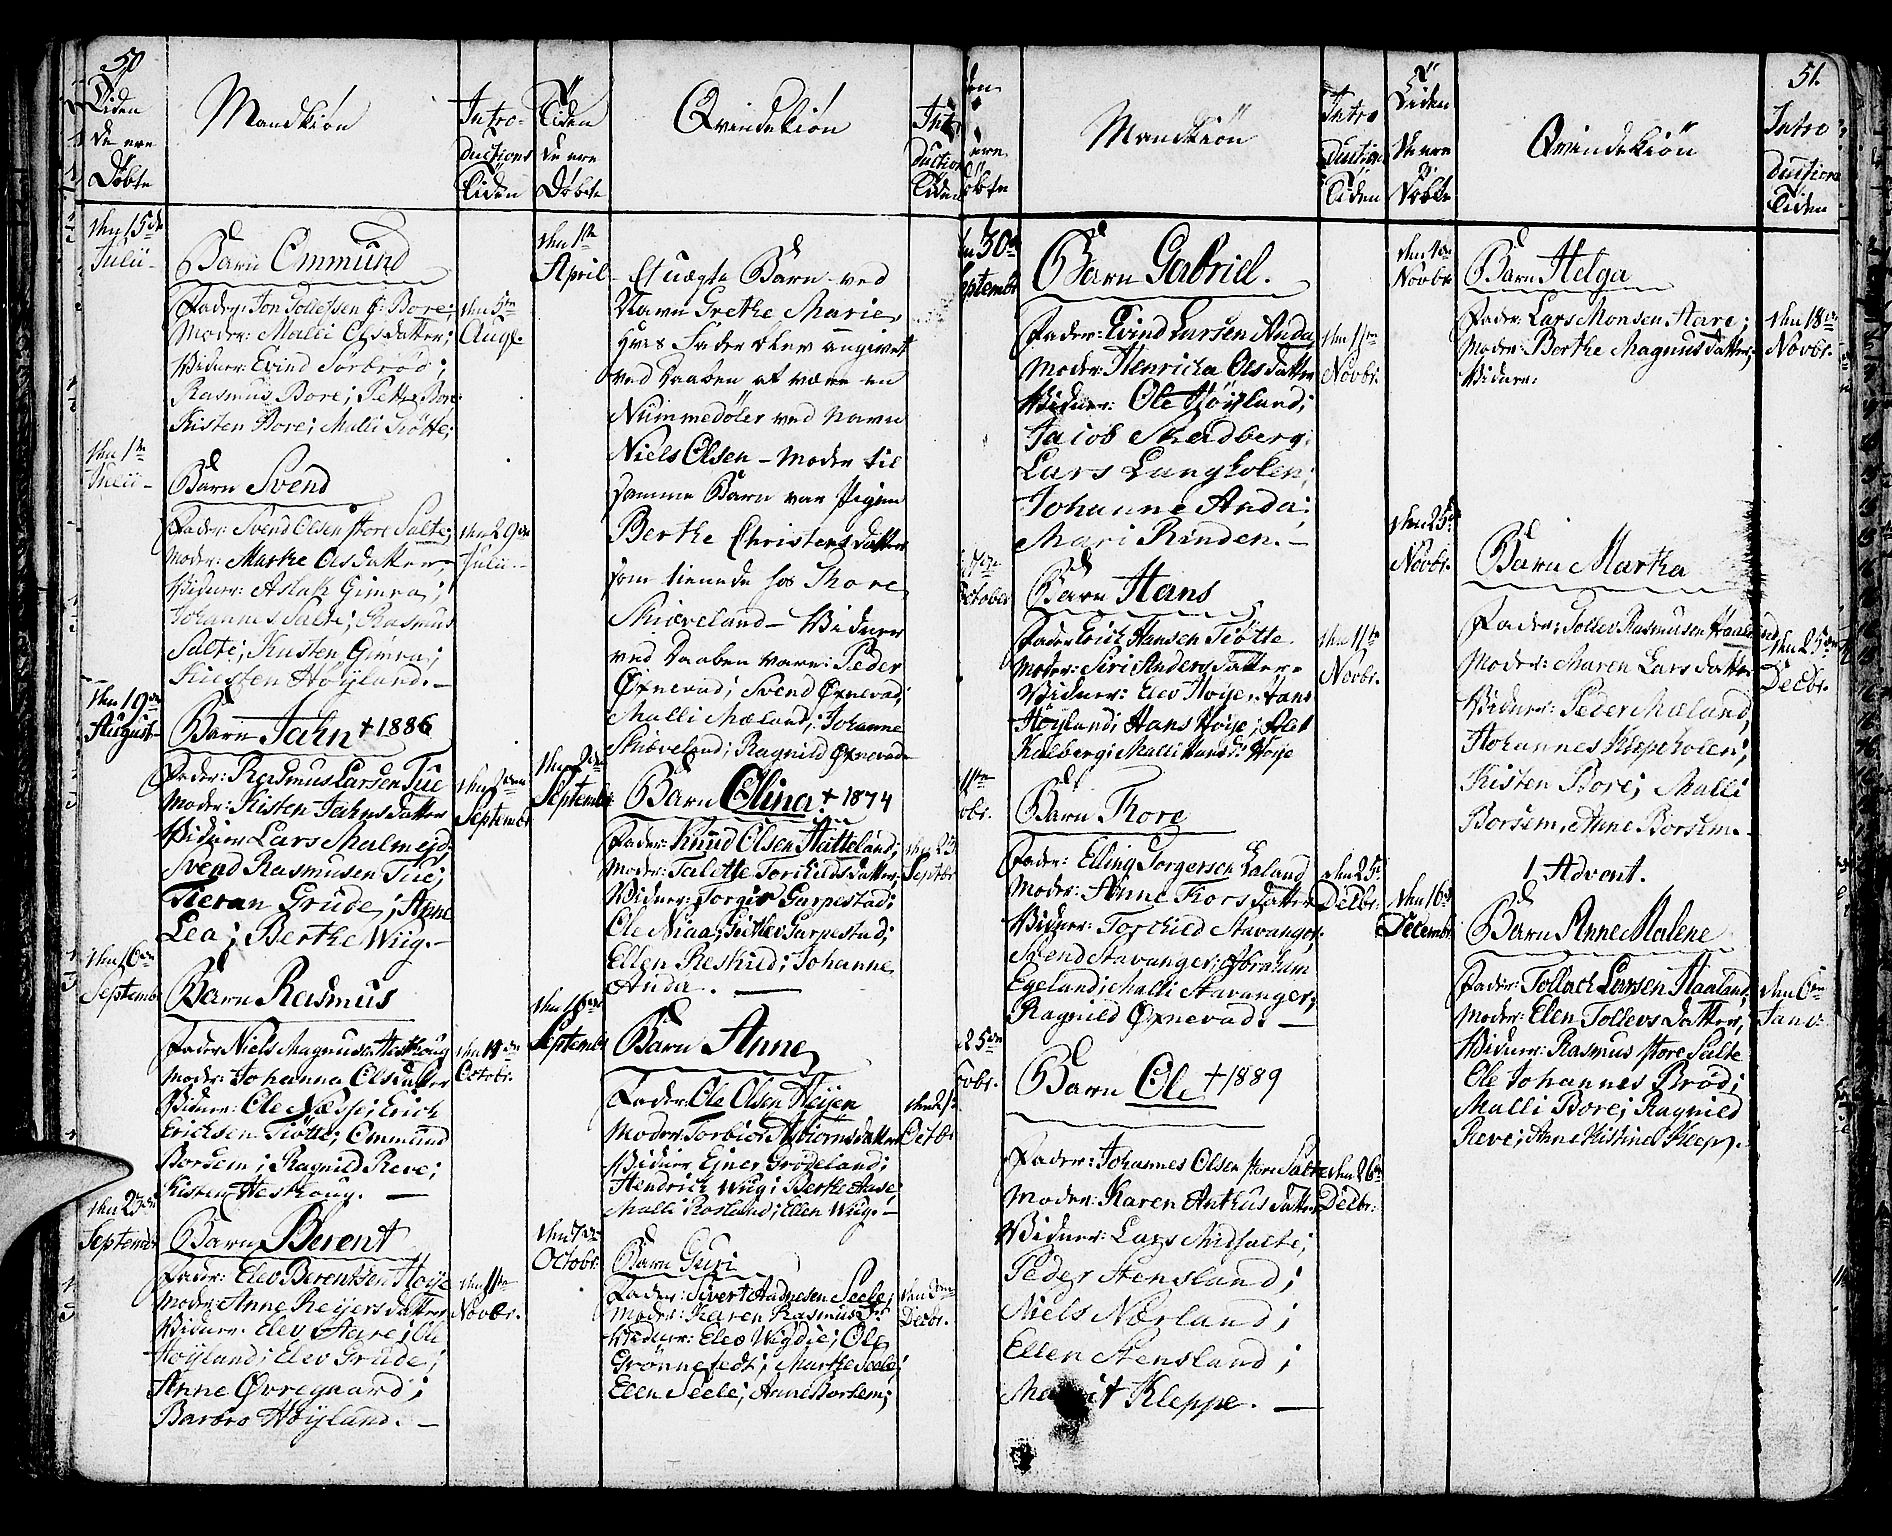 50
Tiden
de ere
Døbte
Mandkiön
Intro-
ductions
Tiden
den 15de
Julii
Barn Ommund
Fader: Jon Tollefsen q: Bore;
Moder: Malli Olsdatter;
Vidner: Evind Sørbrød;
Rasmus Bore; Petter Bore
Kisten Bore; Malli Tiötte;
den 5te
Augt.
den 1te
Julii
Barn Svend
Fader: Svend Olsen Store Salte;
Moder: Marthe Olsdatter,
Vidner: Aslak Gimra;
Johannes Salte; Rasmus
Salte; Kisten Gimra;
Kirsten Høyland.
den 29de
Julii
den 19de
August
Barn Jahn + 1886
Fader: Rasmus Larsen Tue
Moder: Kisten Jahnsdatter
Vidner Lars Malmejd
Svend Rasmusen Tue;
Tieran Grude; Anne
Lea; Berthe Wiig.
Septembr
den 16de
Septembr
Barn Rasmus
Fader Niels Magnusen Haskoug
Moder: Johanna Olsdatter
Vidner: Ole Næsse; Erich
Erichsen Tiötte; Ommund
Borsem; Ragnild Reve;
Kisten Haskoug.
den 14de
Octobr.
den 23de
Septembr
Barn Berent
Fader: Elev Berentsen Höye
Moder: Anne Reijersdatter,
Vidner: Elev Aare; Ole
Høyland; Elev Grude;
Anne Øvregaard;
Barbro Høyland.
den 11te
Novbr.
Tiden
de ere
Döbte
Qvindekiön
Intro
duction
Tiden
den 1te
April
Et uægte Barn ved
Navn Grethe Marie,
hvis Fader blev angivet
ved Daaben at være en
Nummedøler ved Navn
Niels Olsen – Moder til
samme Barn var Pigen
Berthe Christensdatter
som tienede hos Thore
Skiæveland – Vidner
ved Daaben vare: Peder
Øxnevad; Svend Øxnevad;
Malli Mæland; Johanne
Skiæveland; Ragnild Øxnevad
den 2de
Septembr
Barn Olina + 1874
Fader: Knud Olsen Hatteland;
Moder: Talette Torkildsdatter;
Vidner: Torgir Garpestad;
Ole Niaa; Gitlev Garpestad;
Ellen Reskied; Johanne
Anda.
den 23
Septbr
den 16de
Septembr
Barn Anne
Fader: Ole Olsen Høyen
Moder: Torbior Abiornsdatter
Vidner Ejner Grödeland;
Hendrich Wiig; Berthe Aase,
Malli Rosland; Ellen Wiig.
den 21de
Octbr
den 7de
Octobr.
Barn Guri
Fader: Sivert Andnesen Seele;
Moder: Karen Rasmusdr
Vidner: Elev Vigdie; Ole
Grönnestedt; Marthe Seele;
Elen Seele; Anne Borsem;
Decbr.
ere
öbte
Mandkiön
Intro
duction
Tiden
30te
Septembr
Barn Gabriel.
Fader: Evind Larsen Anda
Moder: Henricha Olsdatter
Vidner: Ole Høyland;
Jacob Skadberg;
Lars Langholen;
Johanne Anda;
Mari Rinden.
den 11te
Novbr.
7de
October
Barn Hans
Fader Erich Hansen Tiötte
Moder: Siri Andersdatter
Vidner: Elev Höije; Hans
Høyland; Hans Höije; Adel
Kalberg; Malli Hansdr Höije
den 11te
Novbr.
11te
obr.
Barn Thore
Fader: Elling Torgersen Laland
Moder: Anne Thorsdatter
Vidner: Torchild Stavanger;
Svend Stavanger; Abraham
Egeland; Malli Stavanger;
Ragnild Øxnevad.
den 25de
Decbr.
25de
ovbr.
Barn Ole + 1889
Fader: Johannes Olsen Store Salte
Moder: Karen Anthusdatter
Vidner: Lars Nidsalte;
Peder Stensland;
Niels Nærland;
Ellen Stensland;
Marit Kleppe.
den 26de
Decbr.
Tiden
de ere
Döbte
Qvindekiön
51.
Intro
ductions
Tiden
den 4de
Novbr
Barn Helga
Fader: Lars Monsen Aare;
Moder: Berthe Magnusdatter,
Vidner:
den 18de
Novbr.
den 25de
Novbr.
Barn Martha
Fader: Tollev Rasmusen Haaland
Moder: Maren Larsdatter
Vidner: Peder Mæland,
Johannes Klepholen;
Kisten Bore; Malli
Borsem, Anne Borsem.
den 25de
Decbr.
1. Advent.
den 16de
Decembr
Barn Anne Malene
Fader: Tollach Larsen Haaland,
Moder: Elen Tollevsdatter,
Vidner: Rasmus store Salte
Ole Johannes Brød;
Malli Bore; Ragnild
Reve; Anne Kistine Klepp.
den 6te
Janv.